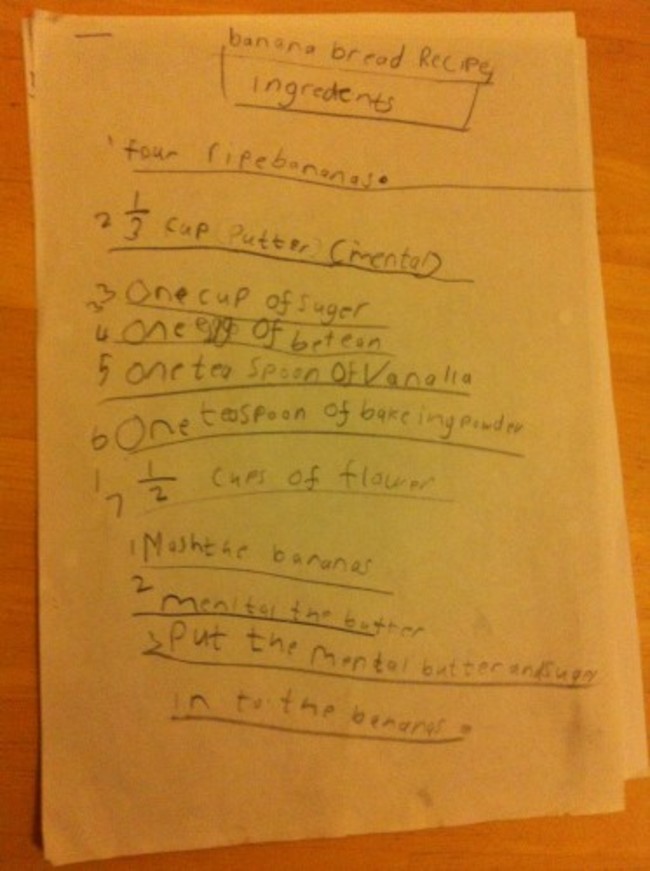 banana bread Recipe
ingredents
1 four ripe bananas.
2 1/3 cup (Putter) (mental)
3 One cup of suger
4 One egg of betean
5 One tea spoon Of Vanalla
6 One teaspoon of bakeing powder
7 1 1/2 cups of flower
1 Mash the bananas
2 menital the butter
3 Put the mental butter and suger
in to the bananas.